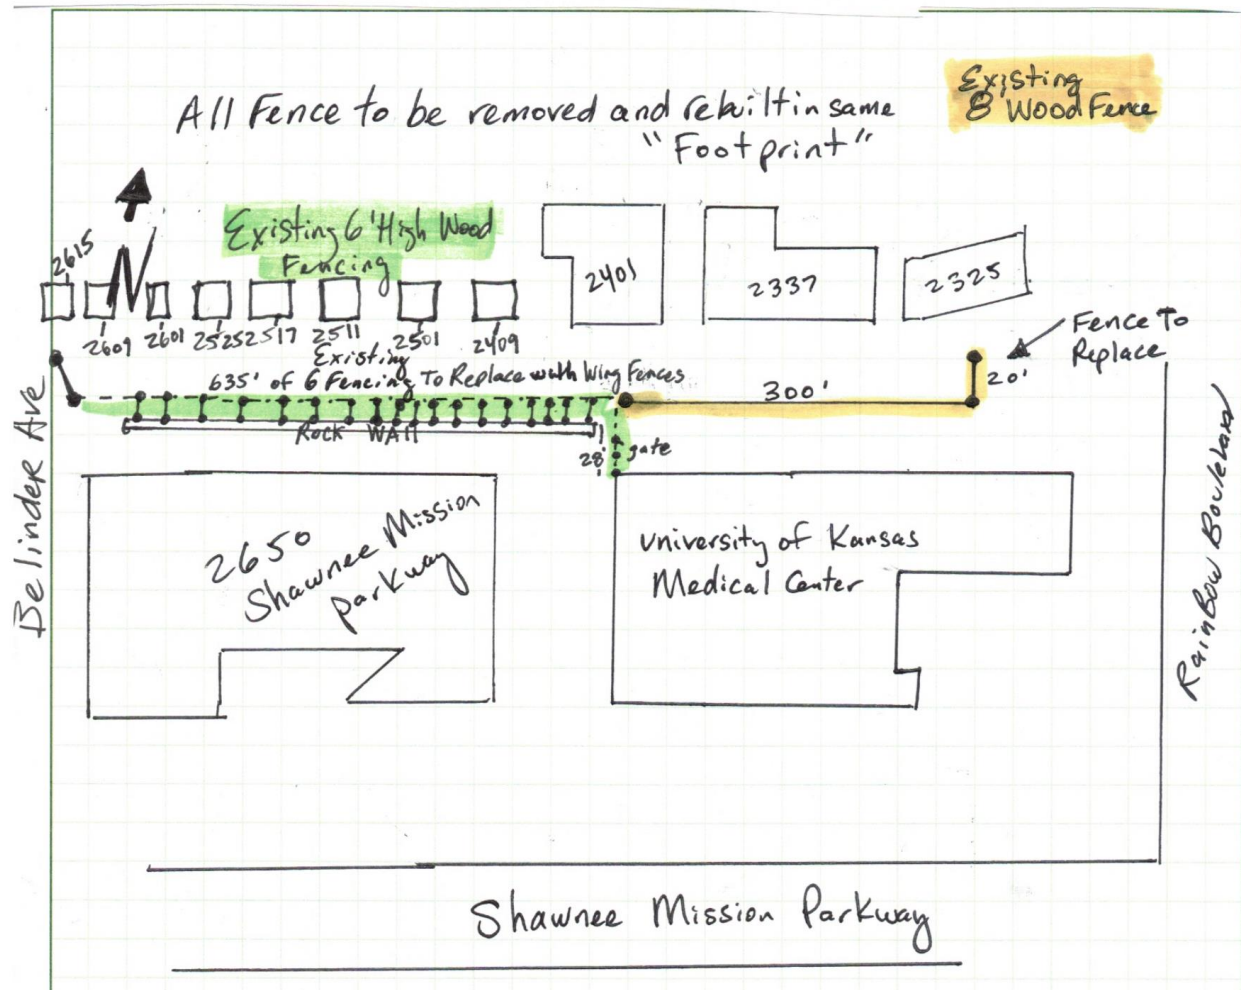 Existing
8' Wood Fence
All Fence to be removed and rebuilt in same
"Footprint"
N
Existing 6' High Wood
Fencing
2615
2609
2601
2525
2517
2511
2501
2409
2401
2337
2325
Fence To
Replace
Existing
635' of 6' Fencing To Replace with Wing Fences
300'
20'
Rock WAll
28'
gate
Belinder Ave
2650
Shawnee Mission
parkway
University of Kansas
Medical Center
RainBow Boulevard
Shawnee Mission Parkway